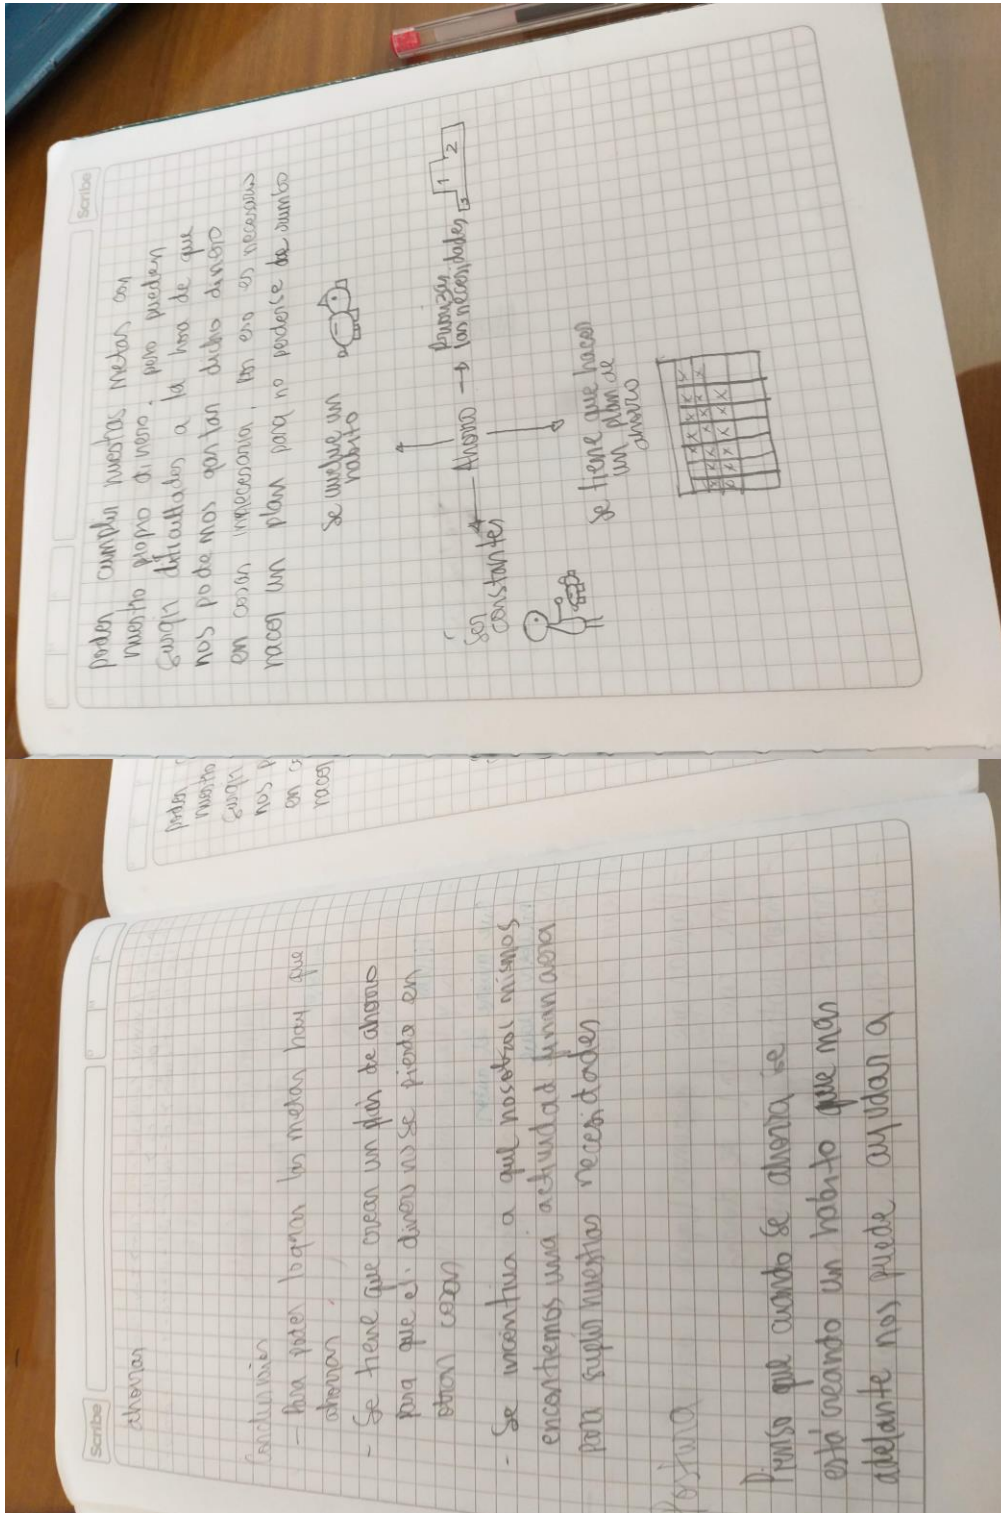 Scribe
ahorrar
Conclusiones
- Para poder lograr las metas hay que
ahorrar.
- Se tiene que crear un plan de ahorro
para que el dinero no se pierda en
otras cosas
- Se incentiva a que nosotros mismos
encontremos una actividad
para suplir nuestras necesidades
Postura
Pienso que cuando se ahorra se
está creando un hábito que más
adelante nos puede ayudar a
Scribe
poder cumplir nuestras metas con
nuestro propio dinero. pero pueden
surgir dificultades a la hora de que
nos podemos gastar dicho dinero
en cosas innecesarias, por eso es necesario
hacer un plan para no perderse de rumbo
Se vuelve un
hábito
Ser
constantes
Ahorro
Priorizar
las necesidades
1
2
3
Se tiene que hacer
un plan de
ahorro
poder
nuestro
surgir
nos p
en c
hacer